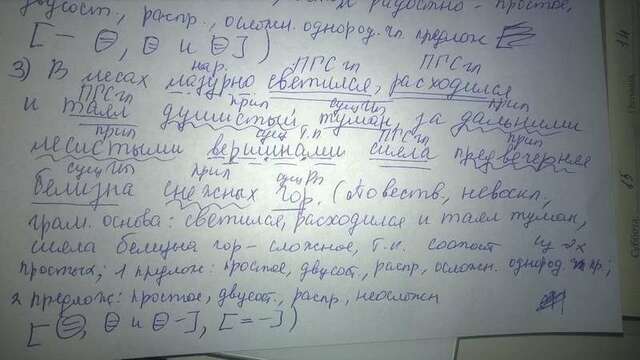 двусост., распр., осложн. однород. чл. предлож
[– О, О и О])
3) В лесах лазурно светился, расходился
нар. ПГС гл ПГС гл
и таял душистый туман, за дальними
ПГС гл прил сущ Ип прил
лесистыми вершинами сияла предвечерняя
прил сущ Т.п ПГС гл прил
белизна снежных гор. (Повеств, невоскл,
сущ Ип прил сущ Рп
грам. основа: светился, расходился и таял туман,
сияла белизна гор – сложное, т.к. состоит из 2х
простых; 1 предлож: простое, двусост., распр., осложн. однород. пр;
2 предлож: простое, двусост., распр, неосложн
[О, О и О –], [= –])
14
13